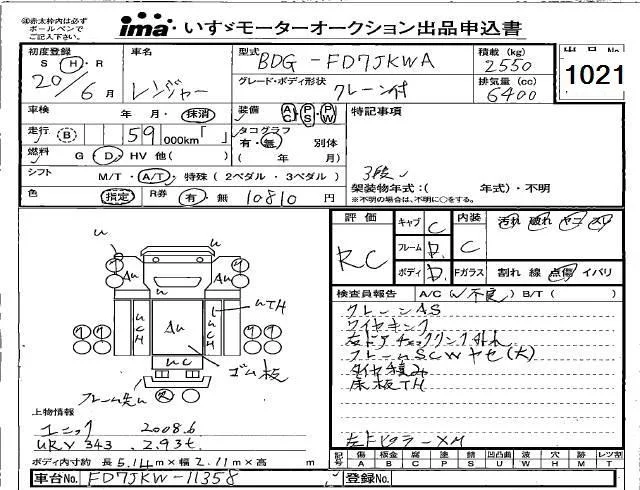 ※赤太枠内は必ず
ボールペンで
ご記入下さい。
ima いすゞモーターオークション出品申込書
初度登録 車名 型式 BDG-FD7JKWA 積載(kg) 出品No
S・H・R 2550 1021
20/6月 レンジャー グレード・ボディ形状 クレーン付 排気量(cc) 6400
車検 年・月・抹消 装備 AC PS PW 特記事項
走行 (B) 59 000km「 」 タコグラフ 有・無 別体
燃料 G・D・HV 他( ) ( 年 月) 3段
シフト M/T・A/T・特殊(2ペダル・3ペダル) 架装物年式:( 年式)・不明
色 指定 R券 有・無 10810円 ※不明の場合は、不明に○をする。
評価 キャブ C 内装 汚れ 破れ ヤニ スレ
RC フレーム D. C
ボディ D. Fガラス 割れ 線 点傷 イバリ
検査員報告 A/C(不良) B/T( )
クレーンAS
ワイヤキンク
右ドアチェックリンク外れ
フレームSCWヤセ(大)
タイヤ積み
床板TH
左Fピラー XM
u
Au Au
u
uCH Au uCH uTH
uC
ゴム板
フレーム先u
上物情報
ユニック 2008.6
URV343 2.93t.
ボディ内寸約 長5.14m×幅2.11m×高 m
記号 傷 板金 腐 塗 錆 凹凸曲 波 穴 跡 レツ割
A B C P S U W H M T
車台No. FD7JKW-11358 登録No.